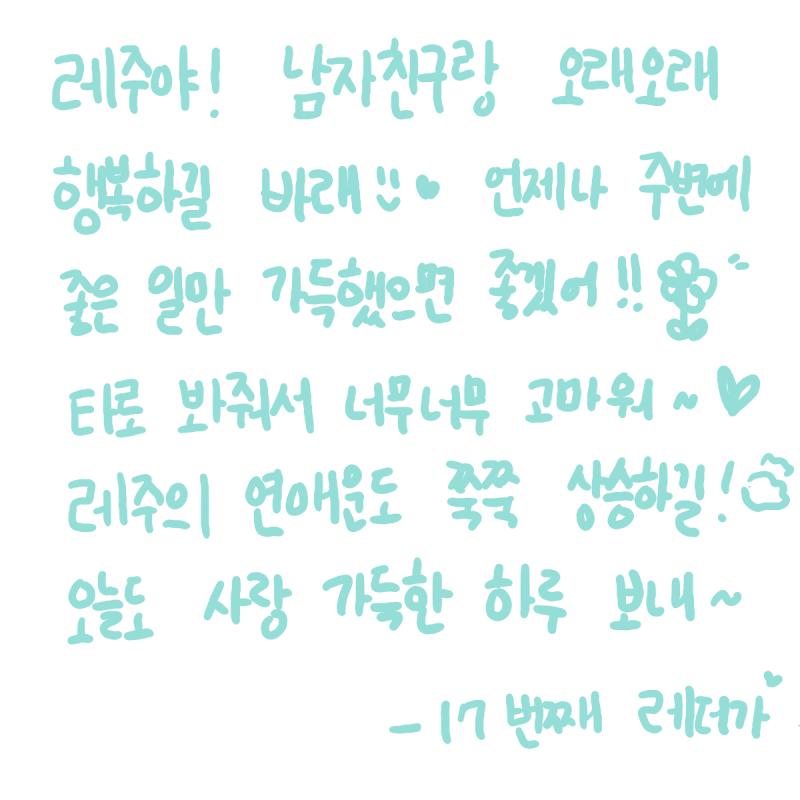 레주야! 남자친구랑 오래오래
행복하길 바래!! 언제나 주변에
좋은 일만 가득했으면 좋겠어!!
타로 봐줘서 너무너무 고마워~♥
레주의 연애운도 쭉쭉 상승하길!
오늘도 사랑 가득한 하루 보내~
-17번째 레더가